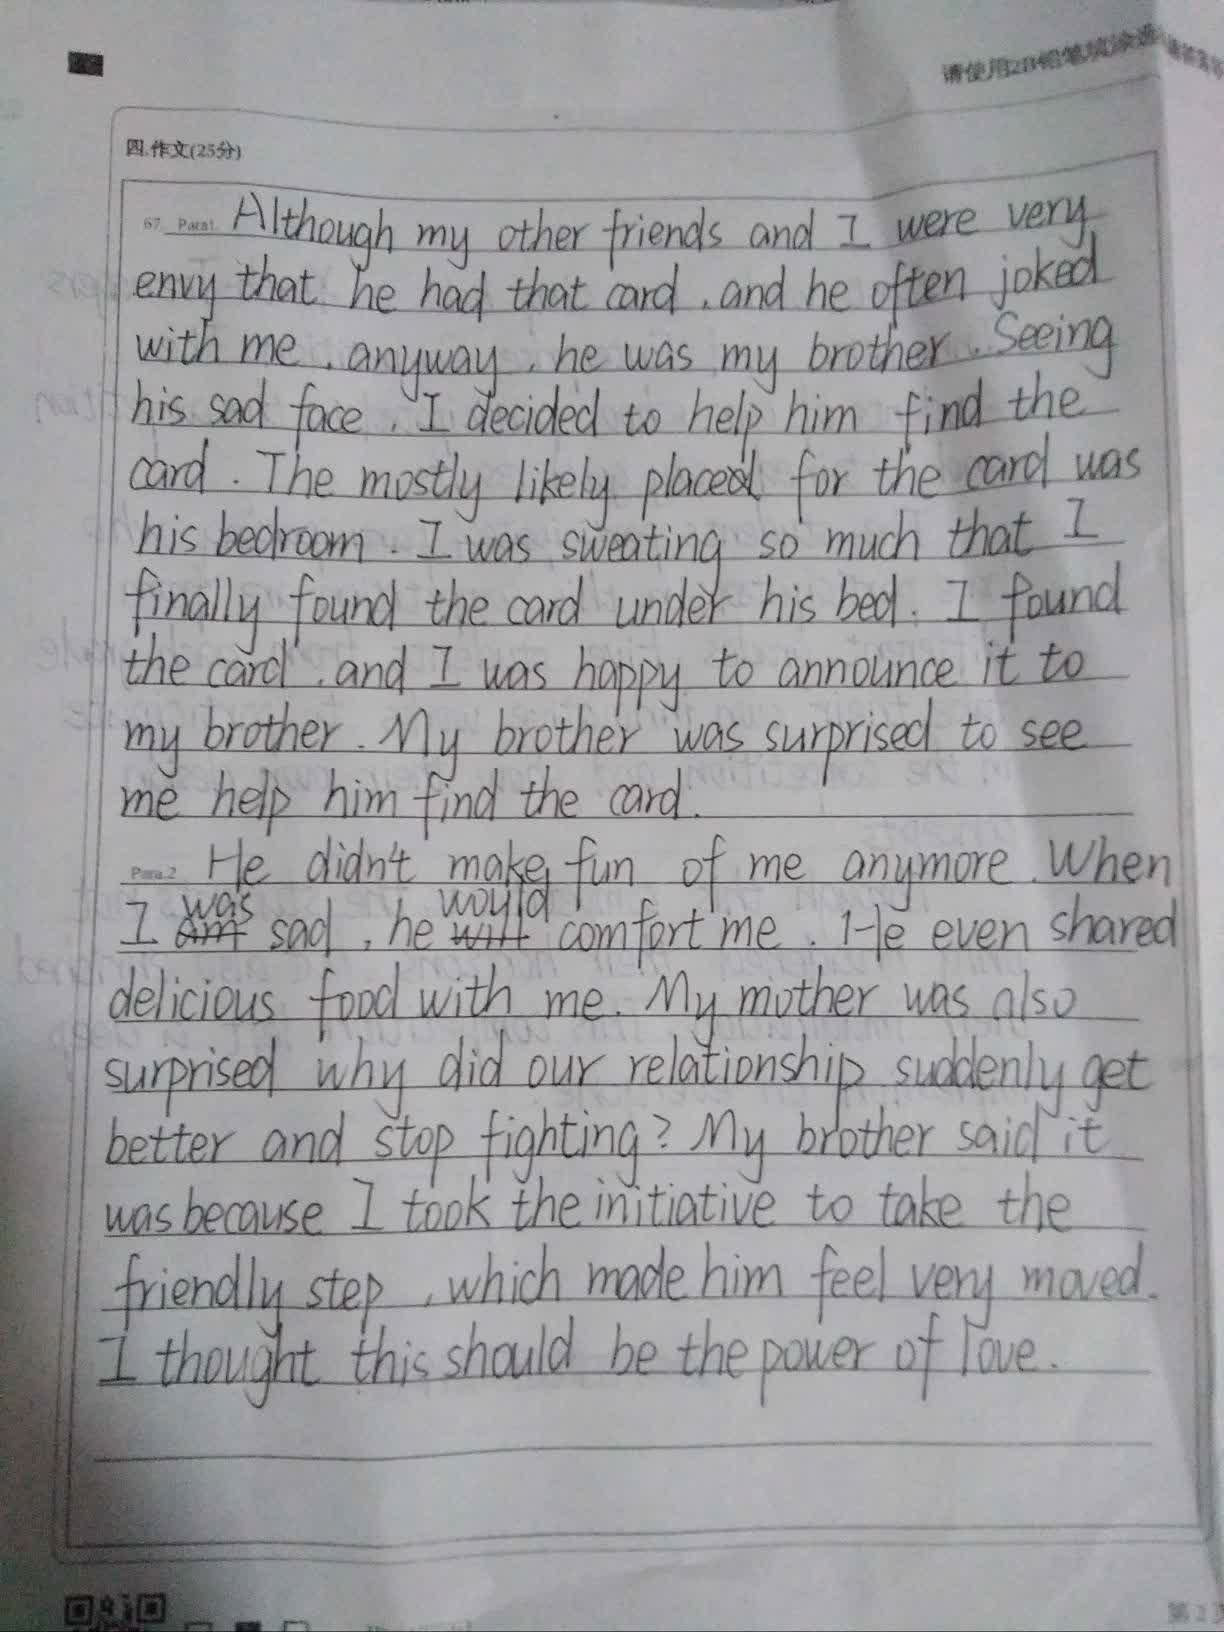 请使用2B铅笔填涂
四.作文(25分)
67. Para1. Although my other friends and I were very
envy that he had that card, and he often joked
with me, anyway, he was my brother. Seeing
his sad face, I decided to help him find the
card. The mostly likely placed for the card was
his bedroom. I was sweating so much that I
finally found the card under his bed. I found
the card, and I was happy to announce it to
my brother. My brother was surprised to see
me help him find the card.
Para.2 He didn't make fun of me anymore. When
was would
I am sad, he will comfort me. He even shared
delicious food with me. My mother was also
surprised why did our relationship suddenly get
better and stop fighting? My brother said it
was because I took the initiative to take the
friendly step, which made him feel very moved.
I thought this should be the power of love.